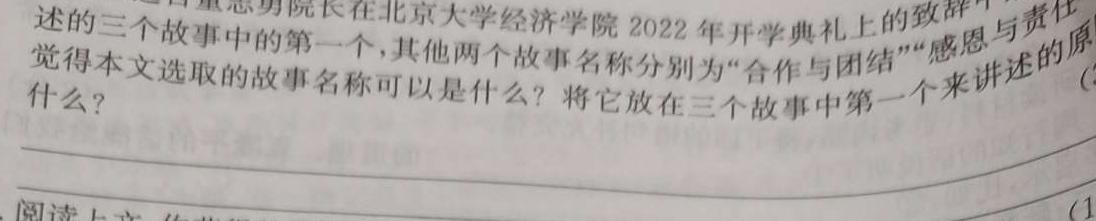 董志勇院长在北京大学经济学院 2022 年开学典礼上的致辞中
述的三个故事中的第一个,其他两个故事名称分别为“合作与团结”“感恩与责任
觉得本文选取的故事名称可以是什么?将它放在三个故事中第一个来讲述的原
什么?
阅读上文
(1